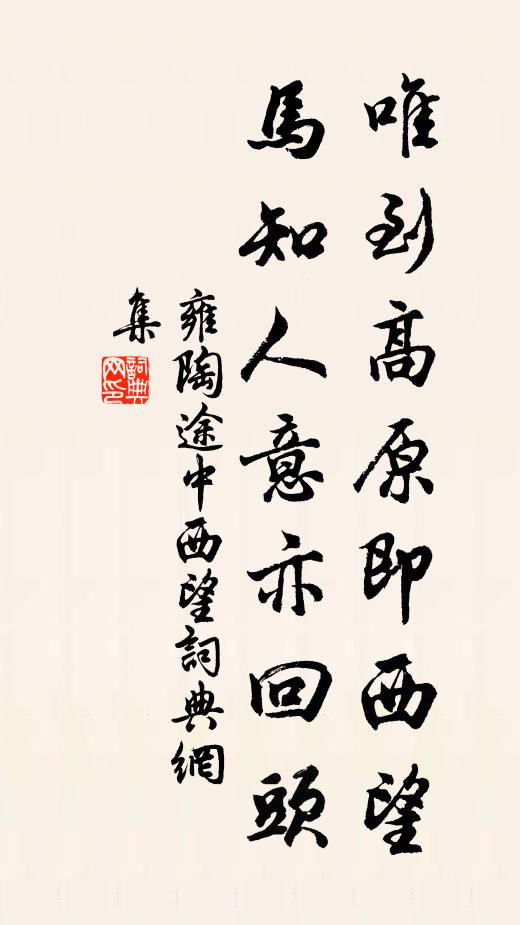 唯到高原即西望
馬知人意亦回頭
雍陶途中西望詞典網
集
詞典
网印